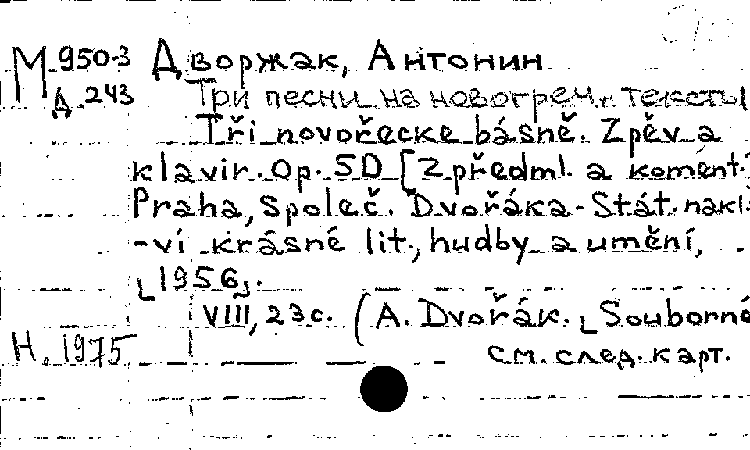 М 950-3 Дворжак, Антонин
Д. 243 Три песни на новогреч. тексты
Tři novořecke básně. Zpěv a
klavir. Op. 50 [Z předml. a koment.
Praha, Společ. Dvořáka - Stát. nakl.
-ví krásné lit., hudby a umění,
[1956].
VIII, 23 c. (A. Dvořák. [Souborné
Н. 1975 см. след. карт.